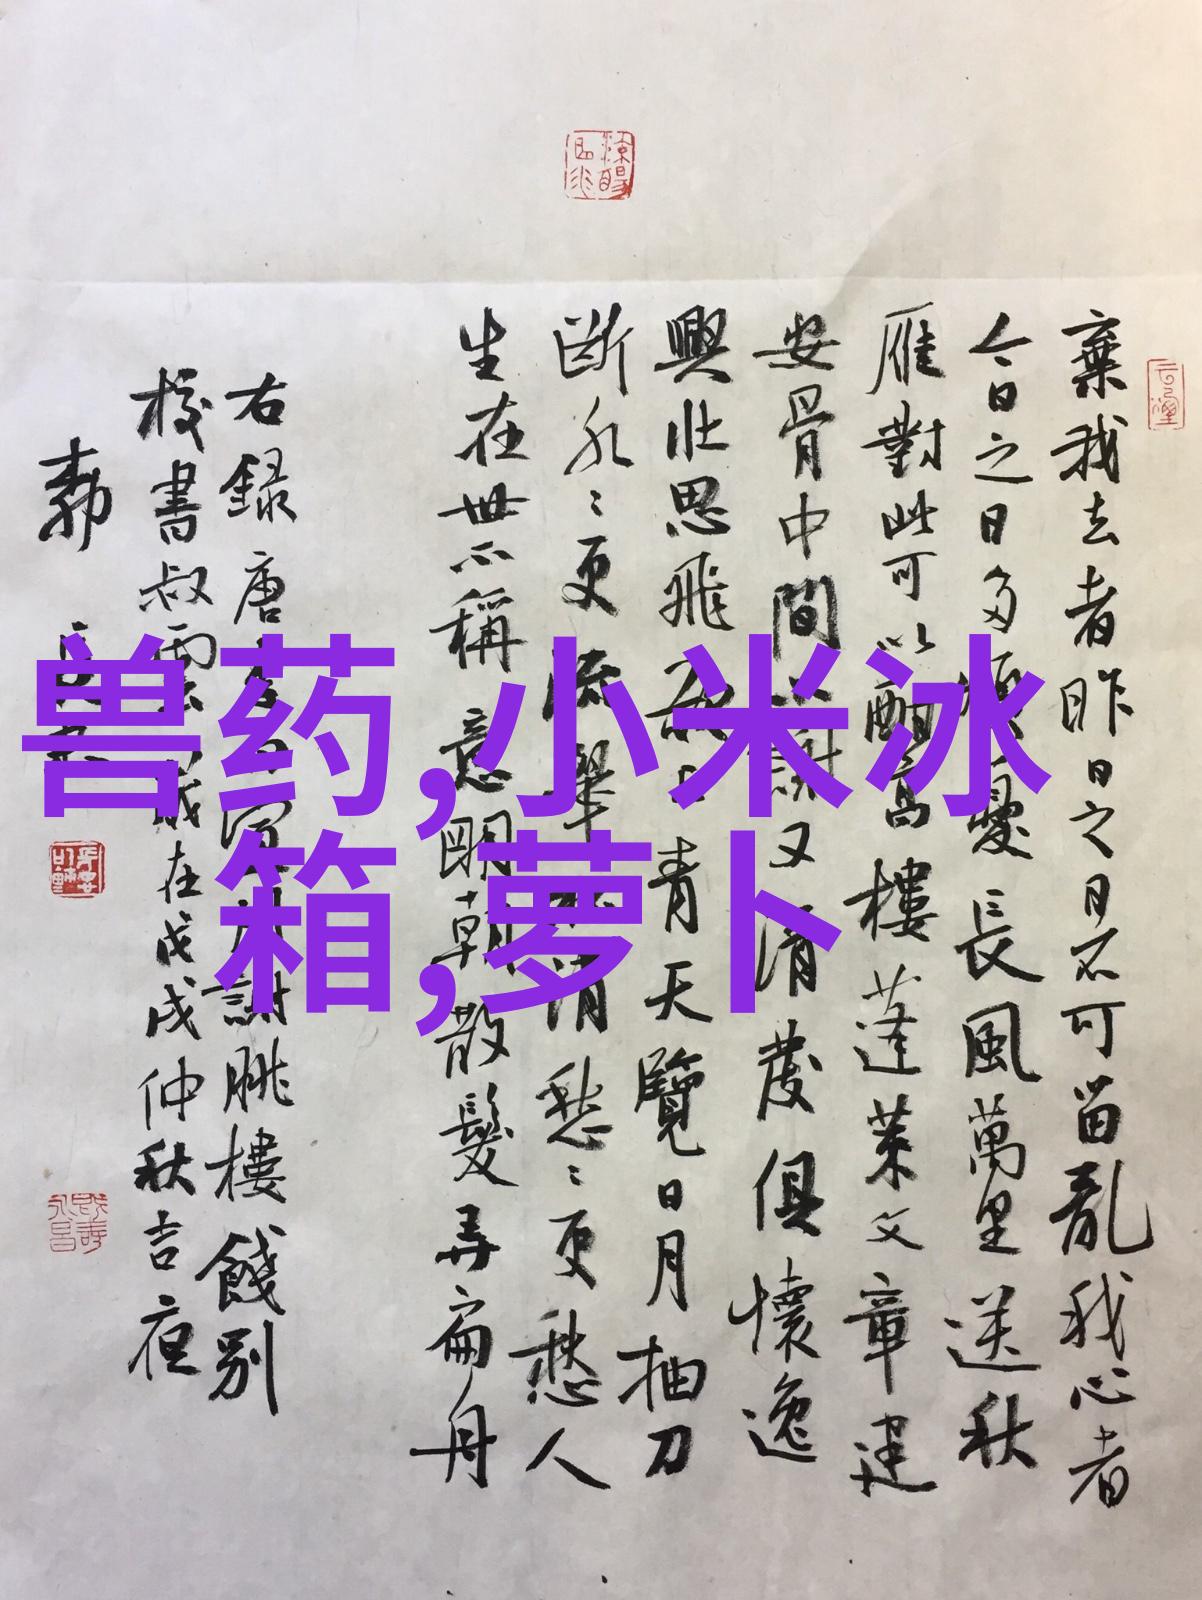 兽药,小米冰
箱,萝卜
棄我去者昨日之日不可留亂我心者
今日之日多煩憂長風萬里送秋
雁對此可以酣高樓蓬萊文章建
安骨中間小謝又清發俱懷逸
興壯思飛欲上青天覽日月抽刀
斷水〻更流舉杯消愁〻更愁人
生在世不稱意明朝散髮弄扁舟
右錄唐謝朓樓餞別
校書叔雲歲在戊戌仲秋吉夜